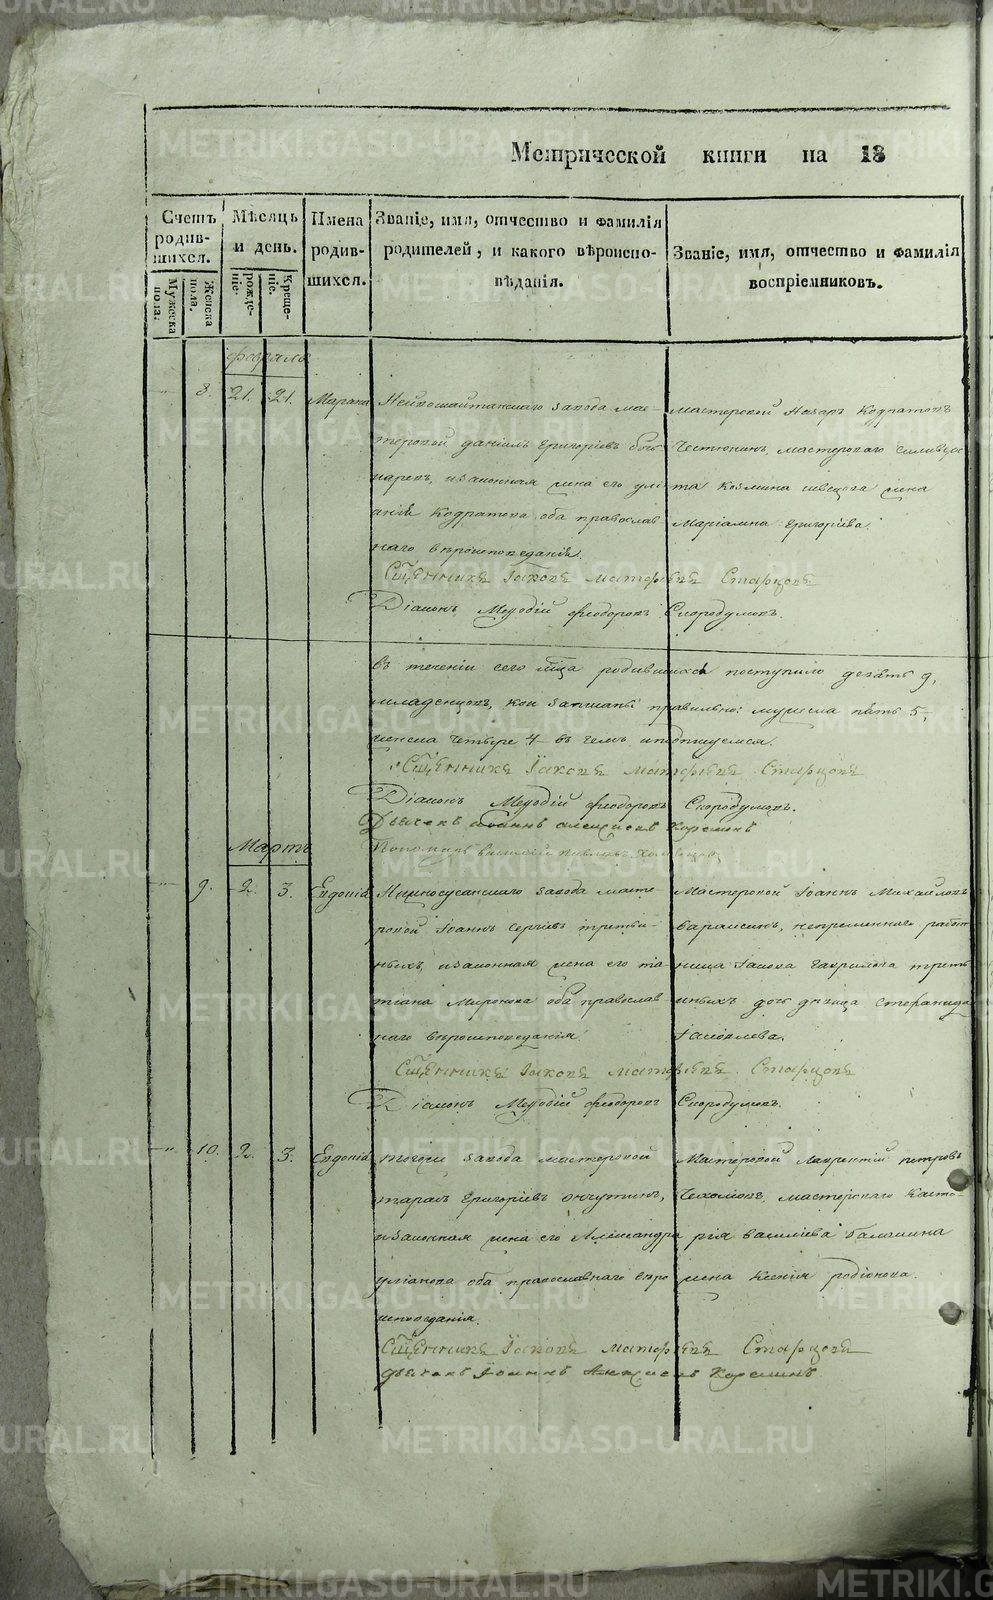 Метрической книги на 18
Счетъ родив-шихся.
Мужеска пола.
Женска пола.
Мѣсяцъ и день.
рожде-ніе.
Креще-ніе.
Имена родив-шихся.
Званіе, имя, отчество и фамилія родителей, и какого вѣроиспо-вѣданія.
Званіе, имя, отчество и фамилія воспріемниковъ.
февраль
8. 21. 21.
завода мас-
терской Даніилъ Григоріевъ
и законная жена его улі-
анія Кодратова оба православ
наго вѣроисповеданія.
мастерской Назаръ Кодратовъ
мастерскаго
та Козмина жена
Маріамна Григоріева.
Сщ҃енникъ Іаковъ Матфѣевъ Старцовъ
Діаконъ Меѳодій Феодоровъ Скородумовъ.
въ теченіи сего мц҃а родившихся поступило девять 9,
младенцовъ, кои записаны правильно: мужеска пять 5,
женска четыре 4 въ чемъ и подпишемся.
Сщ҃енникъ Іаковъ Матфѣевъ Старцовъ
Діаконъ Меѳодій Феодоровъ Скородумовъ.
Дьячекъ Иоаннъ Алексиевъ
Пономарь Василій
Мартъ
9. 2. 3. Евдокія
Нижносусанскаго завода масте-
рской Іоаннъ Сергіевъ третьи-
ныхъ, и законная жена его та-
тіана Миронова оба православ
наго вѣроисповеданія
Мастерской Іоаннъ Михайловъ
непременнаго работ
ника Іакова Гаврилова треть
иныхъ дочь дѣвица Стефанида
Іаковлева.
Сщ҃енникъ Іаковъ Матфѣевъ Старцовъ
Діаконъ Меѳодій Феодоровъ Скородумовъ.
10. 2. 3. Евдокія
тогожъ завода мастерской
тарасъ Григоріевъ
и законная жена его Александра
уліанова оба православнаго вѣро
исповеданія.
Мастерской Лаврентій петровъ
мастерскаго Касто-
рія Василіева Балакина
жена Ксенія родіонова.
Сщ҃енникъ Іаковъ Матфѣевъ Старцовъ
Дьячекъ Іоаннъ Алексиевъ
METRIKI.GASO-URAL.RU